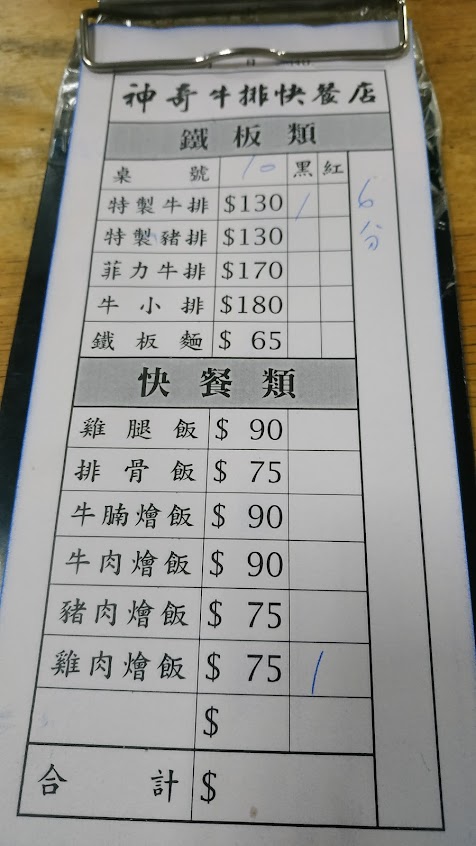 神奇牛排快餐店
鐵板類
桌號 10 黑 紅
特製牛排 $130 1 6分
特製豬排 $130
菲力牛排 $170
牛小排 $180
鐵板麵 $ 65
快餐類
雞腿飯 $ 90
排骨飯 $ 75
牛腩燴飯 $ 90
牛肉燴飯 $ 90
豬肉燴飯 $ 75
雞肉燴飯 $ 75 1
$
合計 $